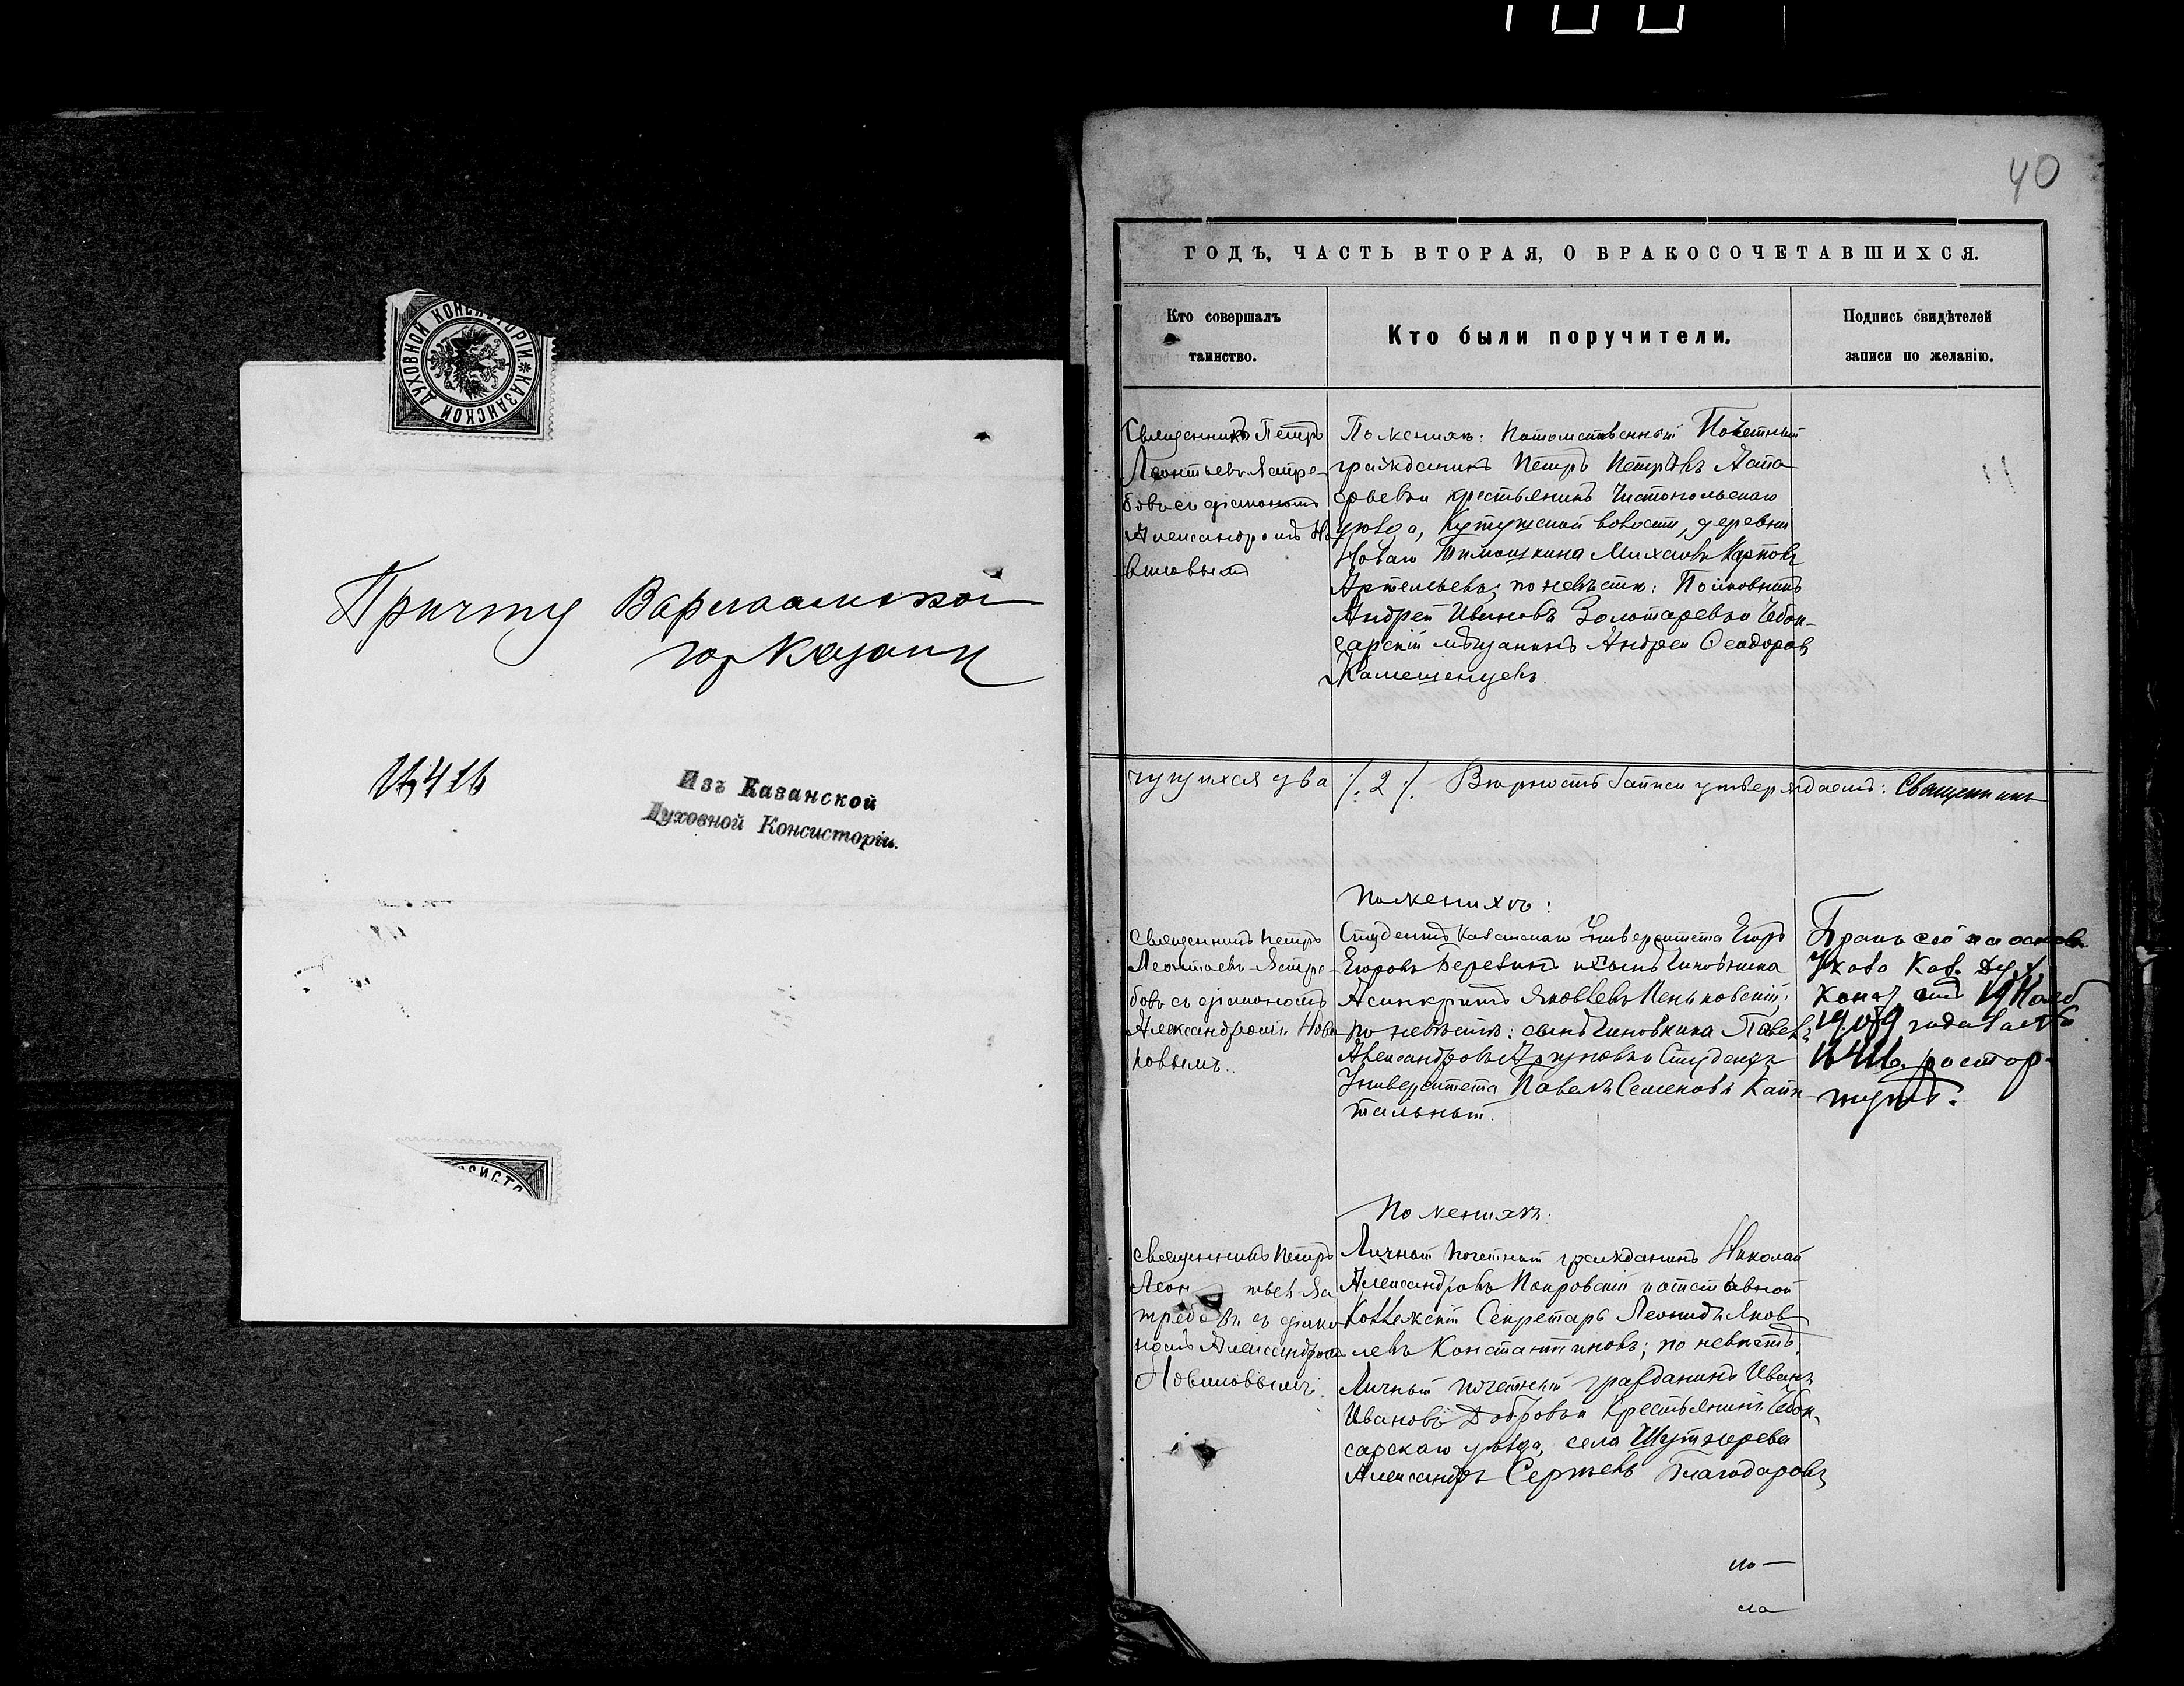 КАЗАНСКОЙ ДУХОВНОЙ КОНСИСТОРІИ
Причту Варлаамской
гор Казани
№ 416
Изъ Казанской
Духовной Консисторіи.
40
ГОДЪ, ЧАСТЬ ВТОРАЯ, О БРАКОСОЧЕТАВШИХСЯ.
Кто совершалъ таинство.
Кто были поручители.
Подпись свидѣтелей записи по желанію.
Священникъ Петръ
Леонтьевъ Ястре-
бовъ съ діакономъ
Александромъ Но-
виковымъ
По женихѣ: Потомственный Почетный
гражданинъ Петръ Петровъ Аста-
фьевъ и крестьянинъ Чистопольскаго
уѣзда, волости, деревни
Новаго Тимошкина Михаилъ Карповъ
Артемьевъ; по невѣстѣ: Полковникъ
Андрей Ивановъ Золотаревъ и Чебок-
сарскій мѣщанинъ Андрей Ѳеодоровъ
Каменецевъ.
чущихся два /. 2 /. Вѣрность записи утверждаетъ: Священникъ
По женихѣ:
Священникъ Петръ
Леонтьевъ Ястре-
бовъ съ діакономъ
Александромъ Нови-
ковымъ.
Студентъ Казанскаго Университета Егоръ
Егоровъ Березинъ и сынъ Чиновника
Асинкритъ Яковлевъ Пеньковскій;
по невѣстѣ: сынъ Чиновника Павелъ
Александровъ и Студентъ
Университета Павелъ Семеновъ Капи-
тальный.
Бракъ сей на основ.
Указа Каз. Дух.
Конс. отъ 19 Нояб
1909 года за №
416. растор-
гнутъ.
По женихѣ:
Священникъ Петръ
Леонтьевъ Яс-
требовъ съ діако-
номъ Александромъ
Новиковымъ.
Личный почетный гражданинъ Николай
Александровъ Покровскій и отставной
Коллежскій Секретарь Леонидъ Яков-
левъ Константиновъ; по невѣстѣ:
Личный почетный гражданинъ Иванъ
Ивановъ Добровъ и Крестьянинъ Чебок-
сарскаго уѣзда, села Шутнерева
Александръ Сергѣевъ Благодаровъ